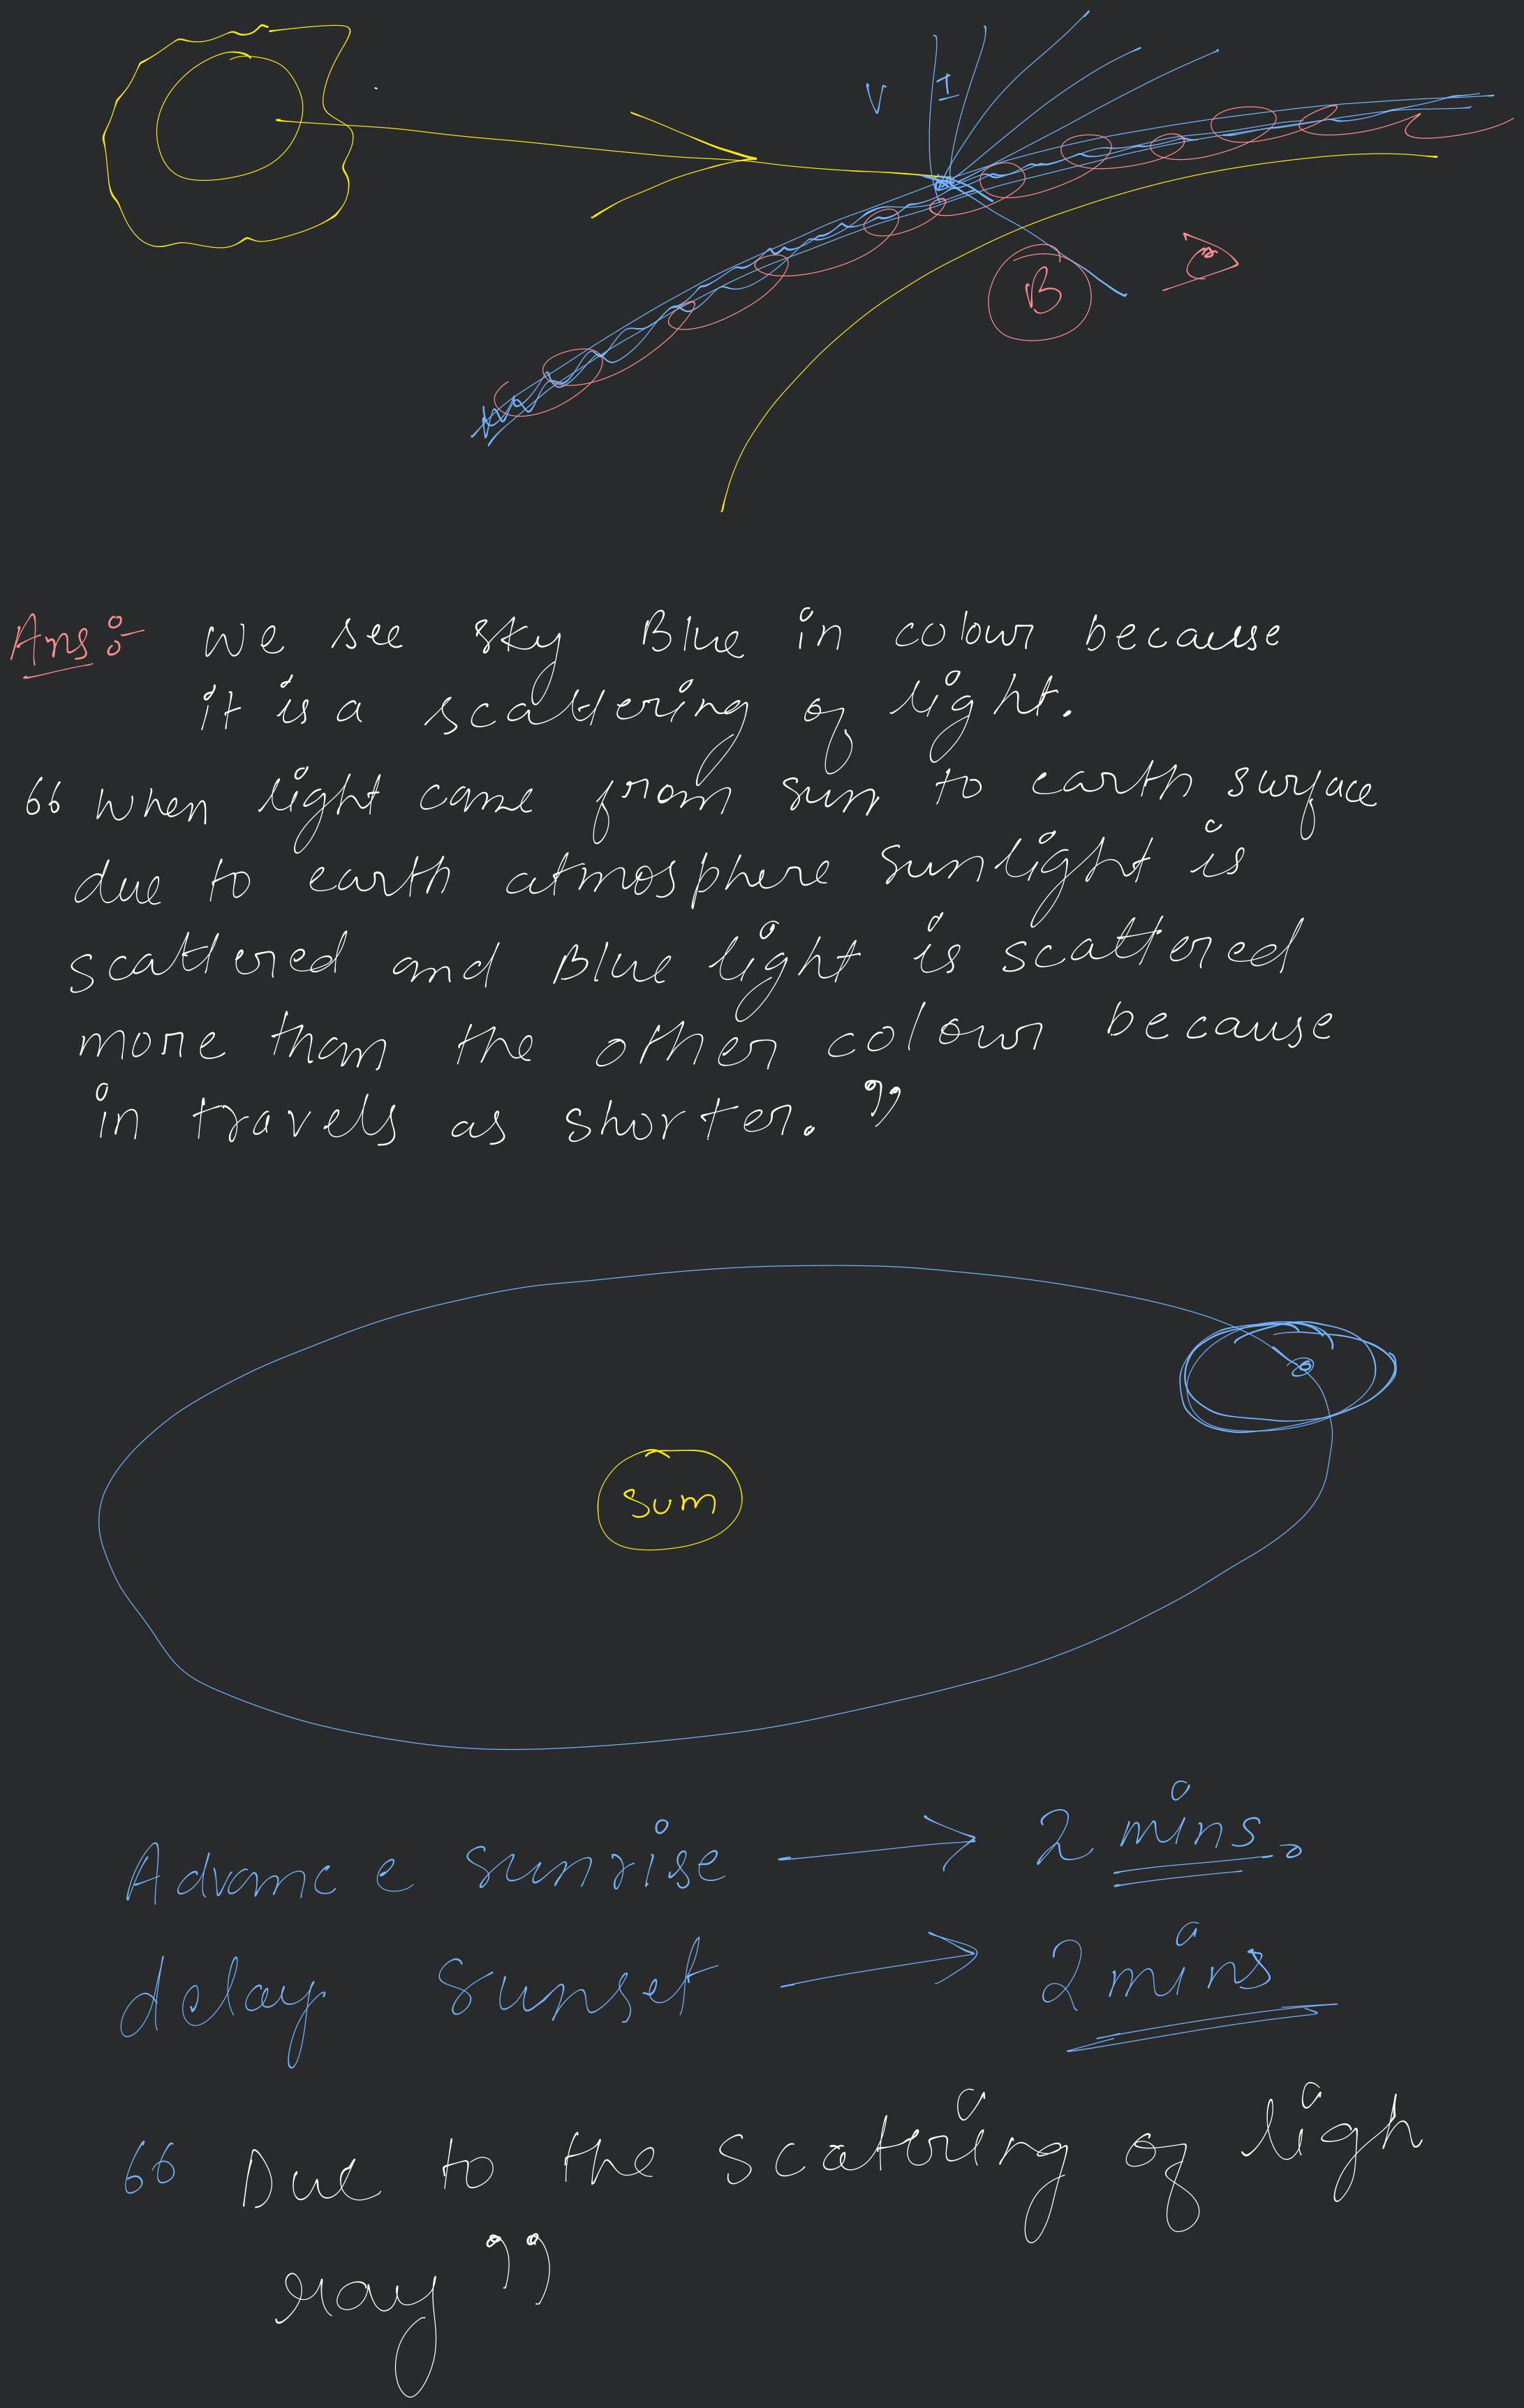 V I
B
Ans :- We see sky Blue in colour because
it is a scattering of light.
“ When light came from sun to earth surface
due to earth atmosphere sunlight is
scattered and Blue light is scattered
more than the other colour because
in travels as shorter. ”
Sun
Advance sunrise → 2 mins.
delay sunset → 2 mins
“ Due to the scattering of ligh
ray ”